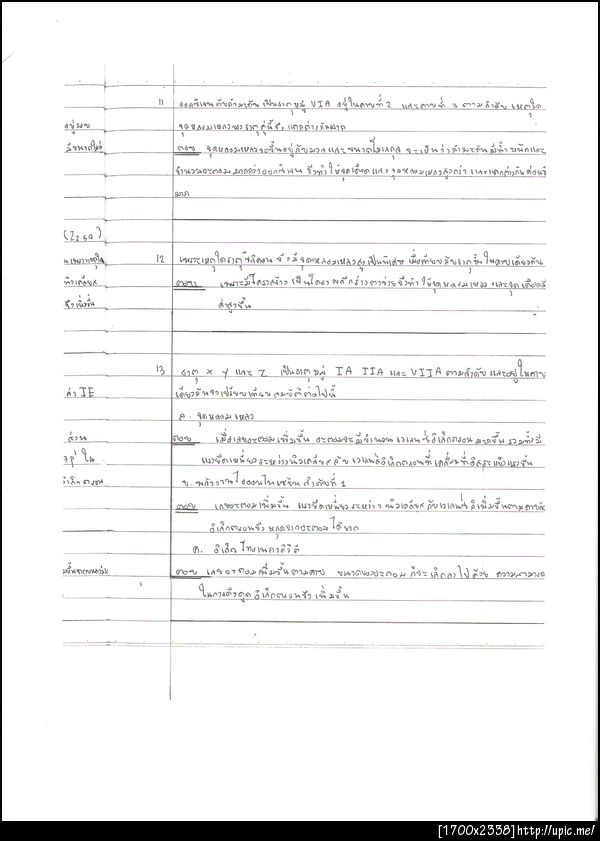 11 ออกซิเจนกับกำมะถันเป็นธาตุหมู่ VIA อยู่ในคาบที่ 2 และคาบที่ 3 ตามลำดับ เหตุใด
จุดหลอมเหลวของธาตุคู่นี้จึงแตกต่างกันมาก
อยู่รอบ
มีขนาดใหญ่
ตอบ จุดหลอมเหลวจะขึ้นอยู่กับมวลและขนาดโมเลกุล จะเห็นว่ากำมะถันมีน้ำหนักและ
จำนวนอะตอมมากกว่าออกซิเจน จึงทำให้จุดเดือดและจุดหลอมเหลวสูงกว่า และแตกต่างกันค่อนข้
มาก
12 เพราะเหตุใดธาตุซิลิคอน จึงมีจุดหลอมเหลวสูงเป็นพิเศษ เมื่อเทียบกับธาตุอื่นในคาบเดียวกัน
ตอบ เพราะมีโครงสร้างเป็นโครงผลึกร่างตาข่ายจึงทำให้จุดหลอมเหลวและจุดเดือดมี
ค่าสูงขึ้น
จึงเพิ่มขึ้น
13 ธาตุ X Y และ Z เป็นธาตุหมู่ IA IIA และ VIIA ตามลำดับ และอยู่ในคาบ
ค่า IE
เดียวกันจงเปรียบเทียบสมบัติต่อไปนี้
ก. จุดหลอมเหลว
ส่วน
ตอบ เมื่อเลขอะตอมเพิ่มขึ้น อะตอมจะมีจำนวนเวเลนซ์อิเล็กตรอนมากขึ้น รวมทั้งมี
3p ใน
แรงยึดเหนี่ยวระหว่างนิวเคลียสกับเวเลนซ์อิเล็กตรอนที่เคลื่อนที่อิสระแข็งแรงขึ้น
ข. พลังงานไอออไนเซชัน ลำดับที่ 1
ตอบ เลขอะตอมเพิ่มขึ้น แรงยึดเหนี่ยวระหว่างนิวเคลียสกับเวเลนซ์
อิเล็กตรอนจึงหลุดจากอะตอมได้ยาก
ค. อิเล็กโทรเนกาติวิตี
ตอบ เลขอะตอมเพิ่มขึ้นตามคาบ ขนาดของอะตอมก็จะเล็กลงไปด้วย ความสามารถ
ในการดึงดูดอิเล็กตรอนจึงเพิ่มขึ้น
[1700x2338]http://upic.me/